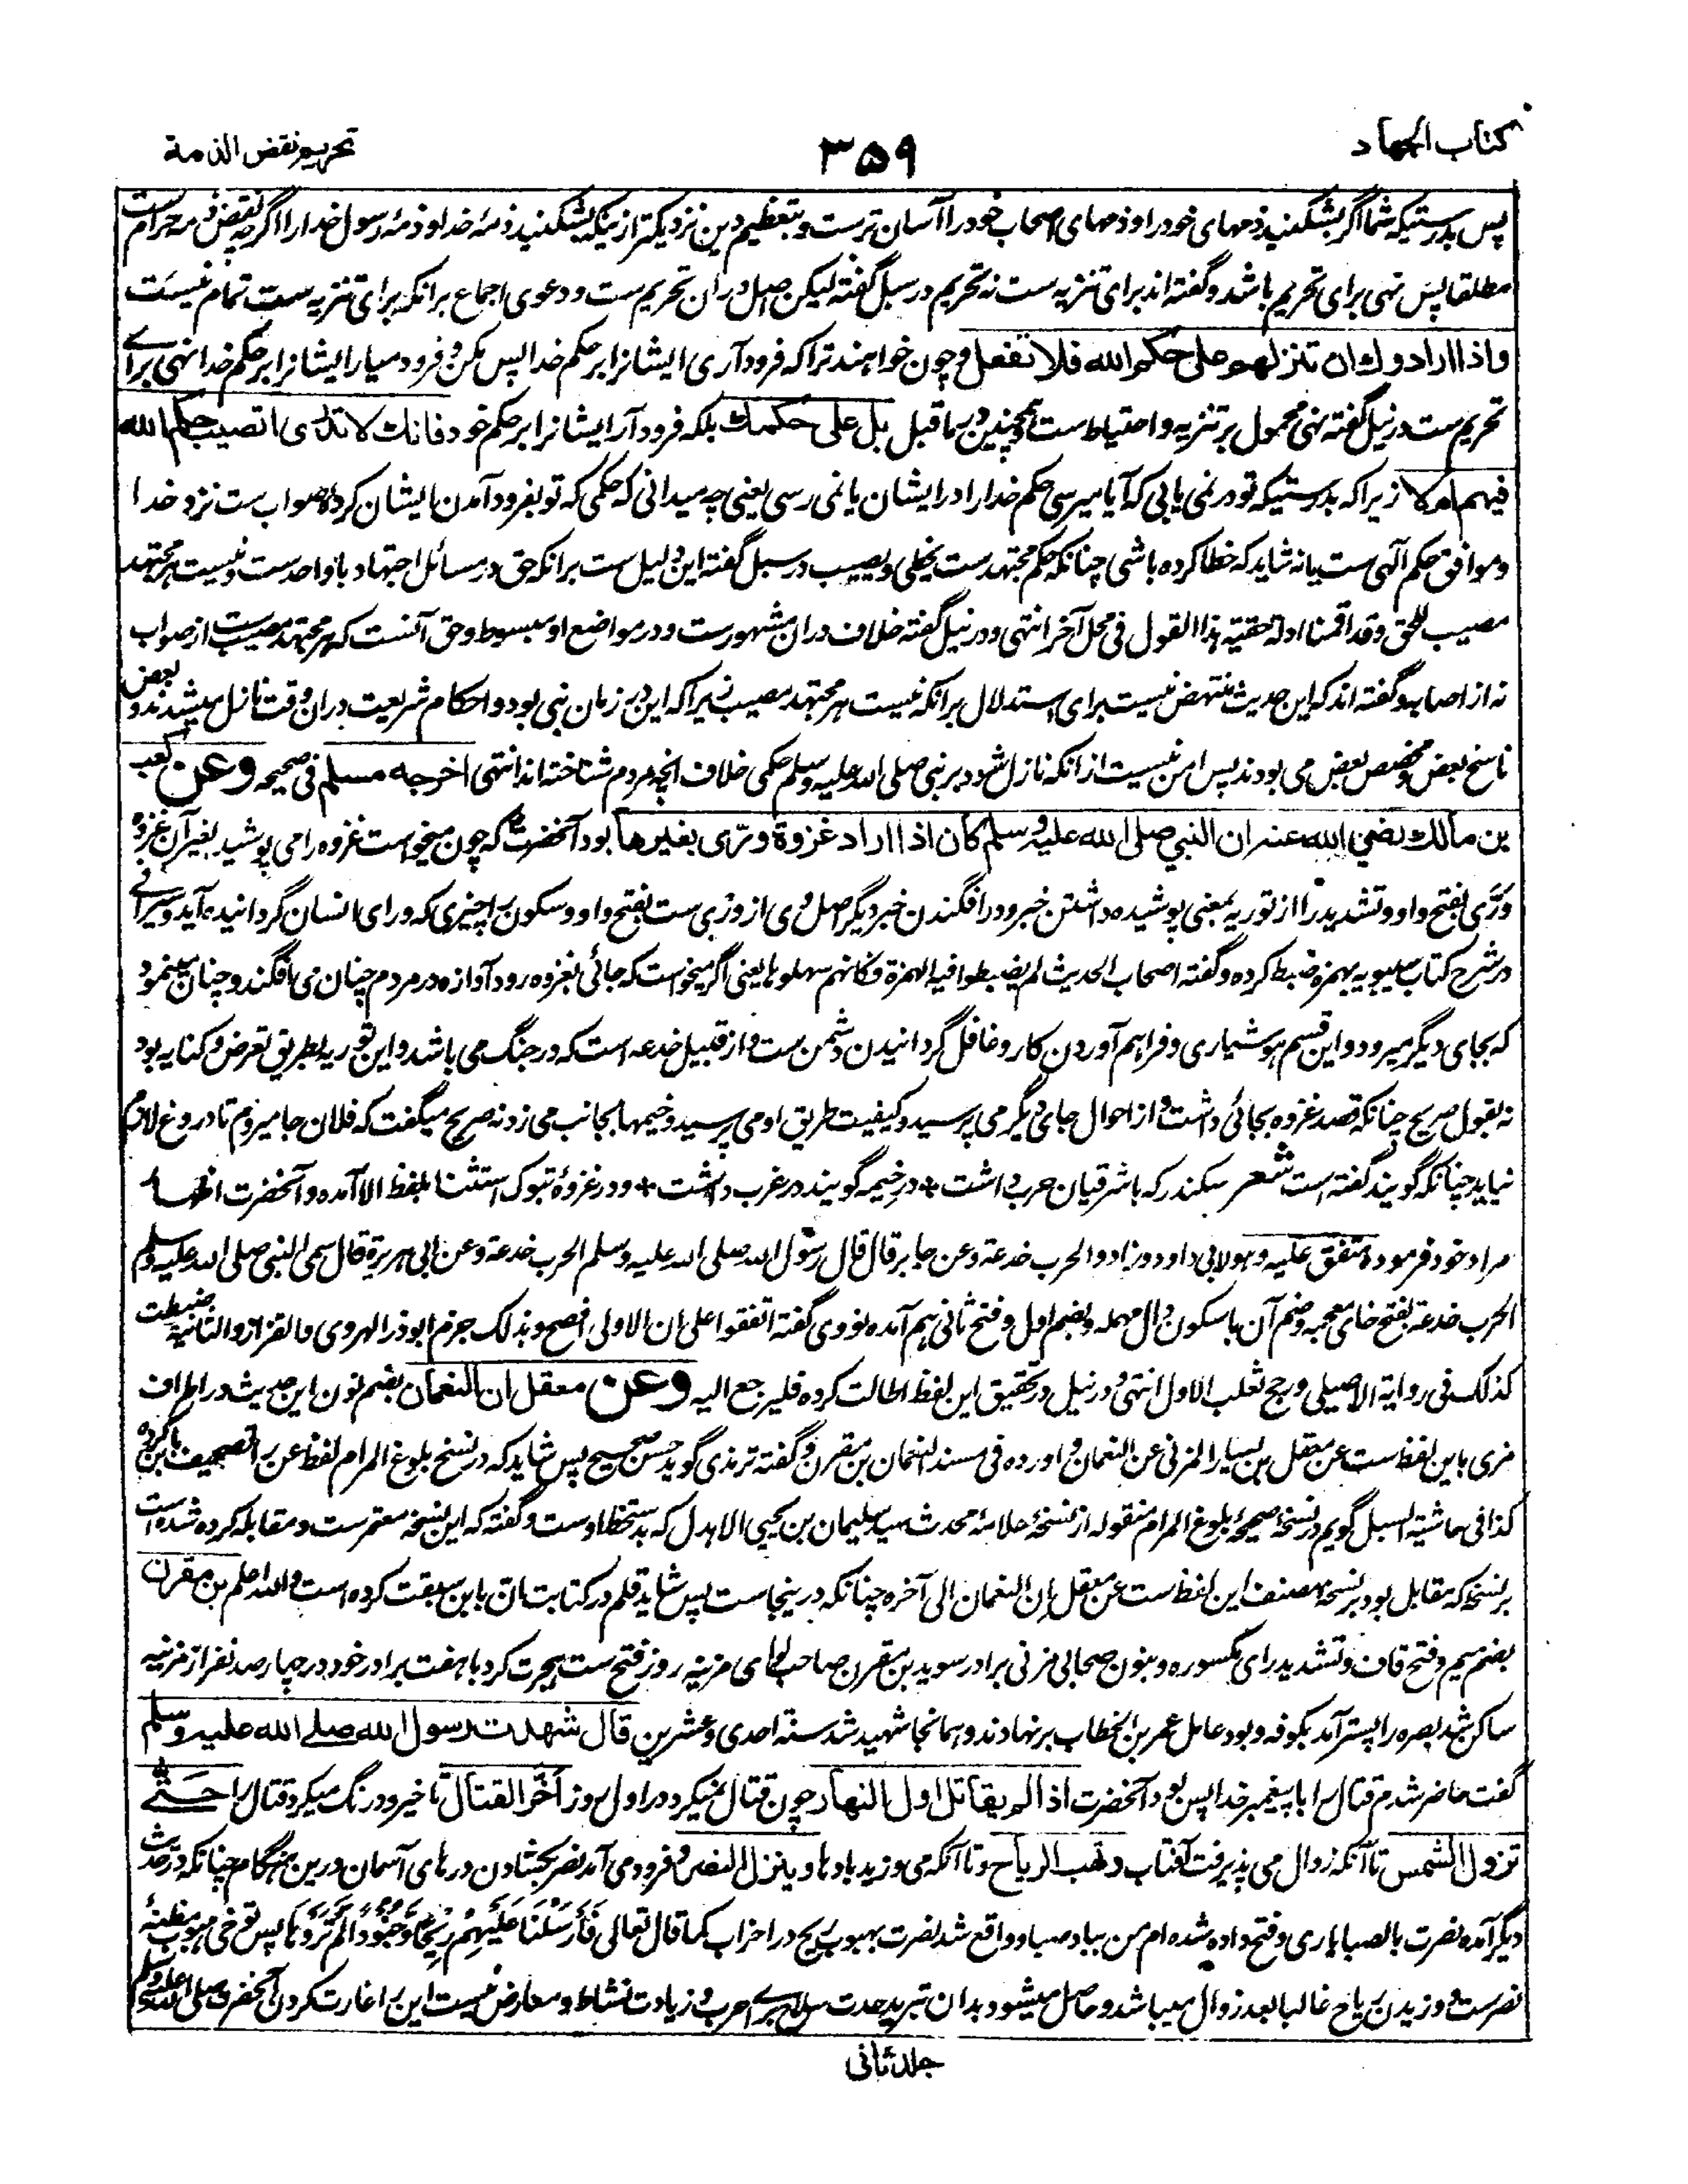 کتاب الجهاد
۳۵۹
تحریم نقض الذمة
پس بدرستیکه شما اگر بشکنید ذمهای خود را و ذمهای اصحاب خود را آسان ترست و بتعظیم دین نزدیکتر از نیکه بشکنید ذمۂ خدا و ذمۂ رسول خدا را اگرچه نقض ذمه حرام ست
مطلقا پس نهی برای تحریم باشد و گفته اند برای تنزیه ست نه تحریم در سبل گفته لیکن اصل دران تحریم ست و دعوی اجماع برانکه برای تنزیه ست تمام نیست
واذا ارادوك ان تنزلهم على حكم الله فلا تفعل و چون خواهند ترا که فرود آری ایشانرا بر حکم خدا پس مکن و فرود میار ایشانرا بر حکم خدا نهی برای
تحریم ست در نیل گفته نهی محمول بر تنزیه و احتیاط ست و همچنین در ما قبل بل على حكمك بلکه فرود آر ایشانرا بر حکم خود فانك لا تدری اتصیب حكم الله
فیهم ام لا زیرا که بدرستیکه تو در نمی یابی که آیا میرسی حکم خدا را در ایشان یا نمی رسی یعنی چه میدانی که حکمی که تو بفرود آمدن ایشان کردهٔ صواب ست نزد خدا
و موافق حکم الهی ست یا نه شاید که خطا کرده باشی چنانکه حکم مجتهد ست یخطی و یصیب در سبل گفته این دلیل ست برانکه حق در مسائل اجتهاد با واحد ست و نیست هر مجتهد
مصیب للحق وقد اقمنا ادلة حقیة هذا القول فی محل آخر انتهی و در نیل گفته خلاف دران مشهور ست و در مواضع او مبسوط و حق آنست که هر مجتهد مصیب ست از صواب
نه از اصابه و گفته اند که این حدیث منتهض نیست برای استدلال برانکه نیست هر مجتهد مصیب زیرا که این در زمان نبی بود و احکام شریعت دران وقت نازل میشدند و بعض
ناسخ بعض و مخصص بعض می بودند پس امن نیست از انکه نازل شود بر نبی صلی الله علیه وسلم حکمی خلاف انچه مردم شناخته اند انتهی اخرجه مسلم فی صحیحه وعن كعب
بن مالك رضي الله عنه ان النبي صلى الله عليه وسلم كان اذا اراد غزوة ورّى بغيرها بود آنحضرت که چون میخواست غزوه را می پوشید بغیر آن غزوه
وَرَّی بفتح واو و تشدید را از توریه بمعنی پوشیده داشتن خبر و در افگندن خبر دیگر اصل وی از وری ست بفتح واو و سکون را چیزی که ورای انسان گردانیده آید و سیرافی
در شرح کتاب سیبویه بهمزه ضبط کرده و گفته اصحاب الحدیث لم یضبطوا فیه الهمزة و کانهم سهلوها یعنی اگر میخواست که جائی بغزوه رود آوازه در مردم چنان می افگند و چنان مینمود
که بجای دیگر میرود و این قسم هوشیاری و فراهم آوردن کار و غافل گردانیدن دشمن ست و از قبیل خدعه است که در جنگ می باشد و این توریه بطریق تعرض و کنایه بود
نه بقول صریح چنانکه قصد غزوه بجائی داشت و از احوال جای دیگر می پرسید و کیفیت طریق او می پرسید و خیمها بجانب می زد نه صریح میگفت که فلان جا میروم تا دروغ لازم
نیاید چنانکه گویند گفته است شعر سکندر که با شرقیان حرب داشت * در خیمه گویند در غرب داشت * و در غزوۀ تبوک استثنا بلفظ الا آمده و آنحضرت اظهار
مراد خود فرموده متفق علیه و هو لابی داود و زاد والحرب خدعة وعن جابر قال قال رسول الله صلی الله علیه وسلم الحرب خدعة وعن ابی هریرة قال سمی النبی صلی الله علیه وسلم
الحرب خدعة بفتح خای معجمه و ضم آن با سکون دال مهمله و بضم اول و فتح ثانی هم آمده نووی گفته اتفقوا علی ان الاولی افصح وبذلک جزم ابوذر الهروی والقزاز والثانیة ضبطت
کذلک فی روایة الاصیلی ورجح ثعلب الاول انتهی و در نیل در تحقیق این لفظ اطالت کرده فلیرجع الیه وعن معقل ان النعمان بضم نون این حدیث در اطراف
مزی باین لفظ ست عن معقل بن یسار المزنی عن النعمان و اورده فی مسند النعمان بن مقرن و گفته ترمذی گوید حسن صحیح پس شاید که در نسخ بلوغ المرام لفظ عن را تصحیف بابن کرده
کذا فی حاشیة السبل گویم در نسخۂ صحیحۂ بلوغ المرام منقوله از نسخۂ علامۂ محدث سید سلیمان بن یحیی الاهدل که بدستخط اوست و گفته که این نسخه معتمر ست و مقابله کرده شده است
بر نسخۂ که مقابل بود بر نسخۂ مصنف این لفظ ست عن معقل ان النعمان الی آخره چنانکه درینجاست پس شاید قلم در کتابت ان باین سبقت کرده است والله اعلم بن مقرن
بضم میم و فتح قاف و تشدید رای مکسوره و بنون صحابی مزنی برادر سوید بن مقرن صاحب لوای مزینه روز فتح ست هجرت کرد با هفت برادر خود در چهار صد نفر از مزینه
ساکن شد بصره را پستر آمد بکوفه و بود عامل عمر بن الخطاب بر نهاوند و همانجا شهید شد سنة احدی وعشرین قال شهدت رسول الله صلے الله عليه وسلم
گفت حاضر شدم قتال را با پیغمبر خدا پس بود آنحضرت اذا لم يقاتل اول النهار چون قتال نمیکرد در اول روز اَخَّر القتال تاخیر و درنگ میکرد قتال را حَتّٰى
تزول الشمس تا آنکه زوال می پذیرفت آفتاب وتهب الرياح و تا آنکه می وزید بادها وينزل النصر و فرود می آمد نصر بکشادن درهای آسمان درین هنگام چنانکه در حدیث
دیگر آمده نصرت بالصبا یاری و فتح داده شده ام من بباد صبا و واقع شد نصرت بهبوب ریح در احزاب کما قال تعالی فَأَرْسَلْنَا عَلَيْهِمْ رِيحًا وَجُنُودًا لَمْ تَرَوْهَا پس توخی هبوب مظنۂ
نصرست و وزیدن ریاح غالبا بعد زوال میباشد و حاصل میشود بدان تبرید حدت سلاح برای حرب و زیادت نشاط و معارض نیست این را غارت کردن آنحضرت صلی الله علیه وسلم
جلد ثانی